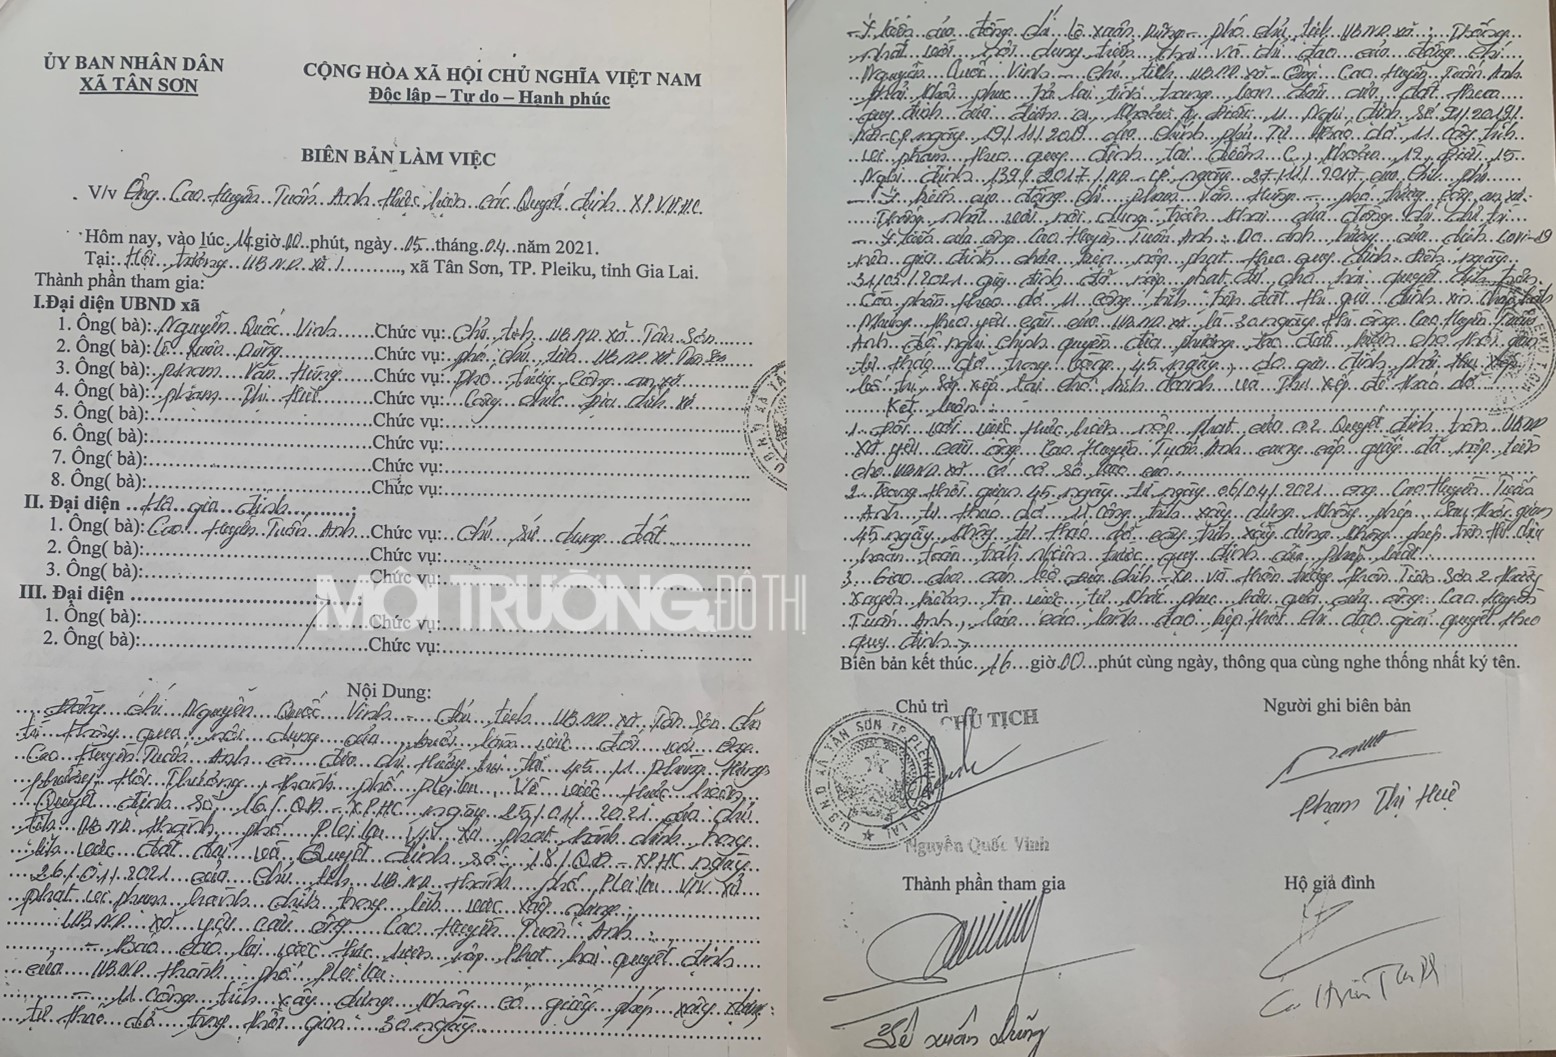 ỦY BAN NHÂN DÂN
XÃ TÂN SƠN
CỘNG HÒA XÃ HỘI CHỦ NGHĨA VIỆT NAM
Độc lập – Tự do – Hạnh phúc
BIÊN BẢN LÀM VIỆC
V/v Ông Cao Huyền Tuấn Anh thực hiện các Quyết định XPVPHC
Hôm nay, vào lúc 14 giờ 00 phút, ngày 05 tháng 04 năm 2021.
Tại: Hội trường UBND xã, xã Tân Sơn, TP. Pleiku, tỉnh Gia Lai.
Thành phần tham gia:
I.Đại diện UBND xã
1. Ông( bà): Nguyễn Quốc Vinh Chức vụ: Chủ tịch UBND xã Tân Sơn
2. Ông( bà): Lê Xuân Dũng Chức vụ: phó chủ tịch UBND xã Tân Sơn
3. Ông( bà): Phạm Văn Hùng Chức vụ: Phó trưởng Công an xã
4. Ông( bà): Phạm Thị Huệ Chức vụ: Công chức địa chính xã
5. Ông( bà): Chức vụ:
6. Ông( bà): Chức vụ:
7. Ông( bà): Chức vụ:
8. Ông( bà): Chức vụ:
II. Đại diện Hộ gia đình
1. Ông( bà): Cao Huyền Tuấn Anh Chức vụ: Chủ sử dụng đất
2. Ông( bà): Chức vụ:
3. Ông( bà): Chức vụ:
III. Đại diện
1. Ông( bà): Chức vụ:
2. Ông( bà): Chức vụ:
MÔI TRƯỜNG ĐÔ THỊ
Nội Dung:
Đồng chí Nguyễn Quốc Vinh – Chủ tịch UBND xã Tân Sơn chủ
trì thông qua nội dung của buổi làm việc đối với ông
Cao Huyền Tuấn Anh có địa chỉ thường trú tại 45 Phùng Hưng
phường Hội Thương, thành phố Pleiku. Về việc thực hiện
Quyết định số 16/QĐ-XPHC ngày 25/01/2021 của chủ
tịch UBND thành phố Pleiku V/v xử phạt hành chính trong
lĩnh vực đất đai và Quyết định số: 18/QĐ-XPHC ngày
26/01/2021 của chủ tịch UBND thành phố Pleiku V/v xử
phạt vi phạm hành chính trong lĩnh vực xây dựng;
UBND xã yêu cầu ông Cao Huyền Tuấn Anh:
- Báo cáo lại việc thực hiện nộp phạt hai quyết định
của UBND thành phố Pleiku.
- 11 công trình xây dựng không có giấy phép xây dựng:
tự tháo dỡ trong thời gian 30 ngày
- Ý kiến của đồng chí Lê Xuân Dũng – phó chủ tịch UBND xã: Thống
nhất với nội dung triển khai và chỉ đạo của đồng chí
Nguyễn Quốc Vinh – chủ tịch UBND xã. Ông Cao Huyền Tuấn Anh
phải khôi phục trả lại tình trạng ban đầu của đất theo
quy định của điểm a, khoản Điều 11 Nghị định số 91/2019/
NĐ-CP ngày 19/11/2019 của chính phủ. Tự tháo dỡ 11 công trình
vi phạm theo quy định tại điểm khoản Điều 15
Nghị định 139/2017/NĐ-CP ngày 27/11/2017 của Chính phủ
- Ý kiến của đồng chí Phạm Văn Hùng – phó trưởng công an xã:
Thống nhất với nội dung triển khai của đồng chí chủ trì
- Ý kiến của ông Cao Huyền Tuấn Anh: Do ảnh hưởng của dịch Covi-19
nên gia đình chưa kịp nộp phạt theo quy định đến ngày
31/03/2021 gia đình đã nộp phạt đủ cho hai quyết định trên
Còn phần tháo dỡ 11 công trình trên đất thì gia đình xin chấp hành
Nhưng theo yêu cầu của UBND xã là 30 ngày thì ông Cao Huyền Tuấn
Anh đề nghị chính quyền địa phương tạo điều kiện cho thời gian
tự tháo dỡ trong vòng 45 ngày, do gia đình phải thu xếp
bố trí, sắp xếp lại chỗ kinh doanh và thu xếp để tháo dỡ.
Kết luận:
1. Đối với việc thực hiện nộp phạt của 02 Quyết định trên UBND
xã yêu cầu ông Cao Huyền Tuấn Anh cung cấp giấy đã nộp tiền
cho UBND xã có cơ sở báo cáo.
2. Trong thời gian 45 ngày từ ngày 06/04/2021 ông Cao Huyền Tuấn
Anh tự tháo dỡ 11 công trình xây dựng không phép. Sau thời gian
45 ngày không tự tháo dỡ công trình xây dựng không phép trên thì chịu
hoàn toàn trách nhiệm trước quy định của pháp luật.
3. Giao cho cán bộ địa chính – XD và thôn trưởng thôn Tiên Sơn 2 thường
xuyên kiểm tra việc tự khắc phục hậu quả của ông Cao Huyền
Tuấn Anh, báo cáo lãnh đạo kịp thời chỉ đạo giải quyết theo
quy định.
Biên bản kết thúc 16 giờ 00 phút cùng ngày, thông qua cùng nghe thống nhất ký tên.
Chủ trì
CHỦ TỊCH
Nguyễn Quốc Vinh
Người ghi biên bản
Phạm Thị Huệ
Thành phần tham gia
Lê Xuân Dũng
Hộ gia đình